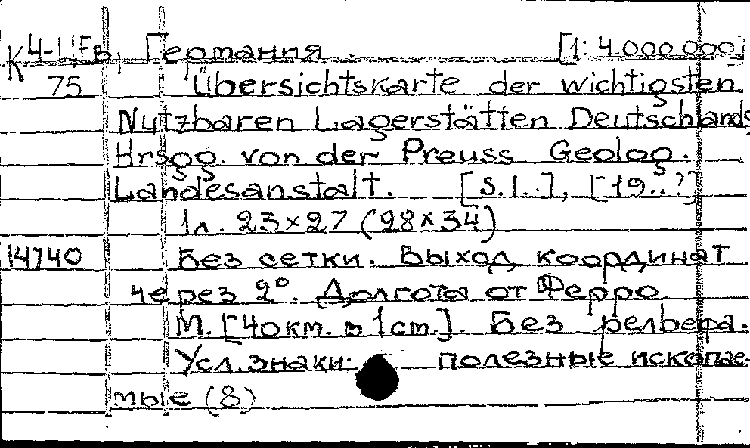 К 4-Ц,Ев, Германия. [1:4.000.000]
75 Übersichtskarte der wichtigsten
Nutzbaren Lagerstätten Deutschlands
Hrsgg. von der Preuss Geolog.
Landesanstalt. [S.l..], [19..?]
1л. 23×27 (28×34)
14740 Без сетки. Выход координат
через 2°. Долгота от Ферро.
М. [40км. в 1см.]. Без рельефа.
Усл. знаки: полезные ископае-
мые (8)